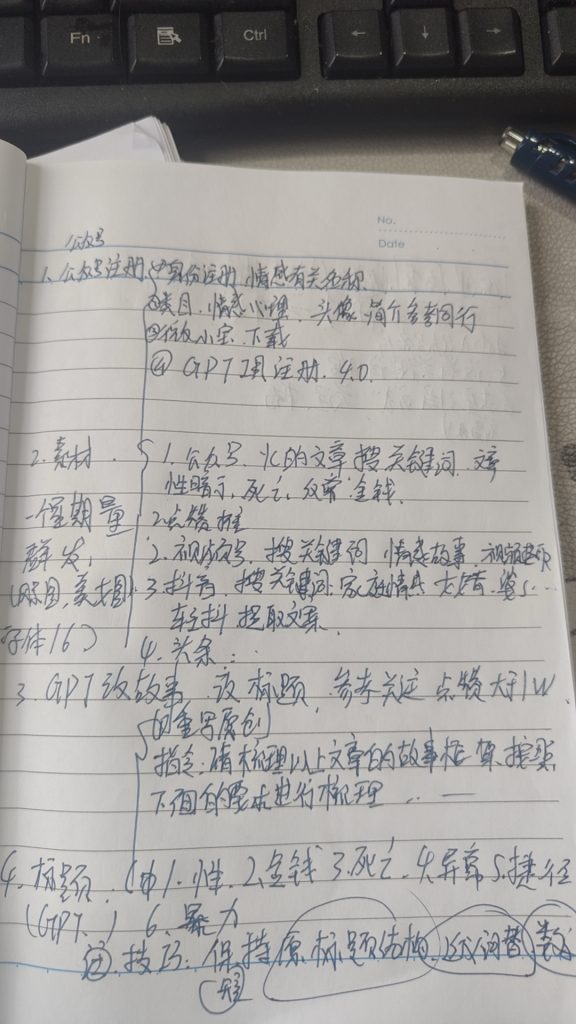 Fn
Ctrl
No.
Date
公众号
1. 公众号注册 ①身份注册 情感有关名称
②类目、情感心理、头像 简介多看同行
③ 小宝 下载
④ GPT 注册. 4.0.
2. 素材
1. 公众号、 的文章 搜关键词
性暗示、死亡、 金钱.
一个星期量
2. 点赞
群发、
2. 视频号、搜关键词 情感故事、视频
3. 抖音、搜关键词、家庭情 
字体16)
轻抖 提取文案.
4. 头条 :
3. GPT改故事、改标题、参考关注 点赞大于1W
的重写原创
指令: 请梳理以上文章的故事框架,按照
下面的要求进行梳理 ... —
4. 标题. 1. 性. 2. 金钱 3. 死亡. 4. 异常 5. 捷径
(GPT.) 6. 暴力
技巧: 保持原标题结构、 词替